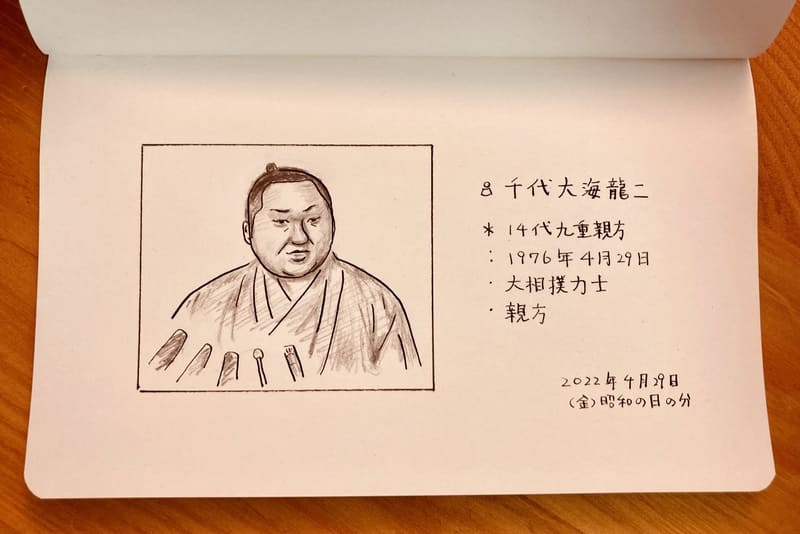 千代大海龍二
* 14代九重親方
: 1976年4月29日
・大相撲力士
・親方
2022年4月29日
(金)昭和の日の分